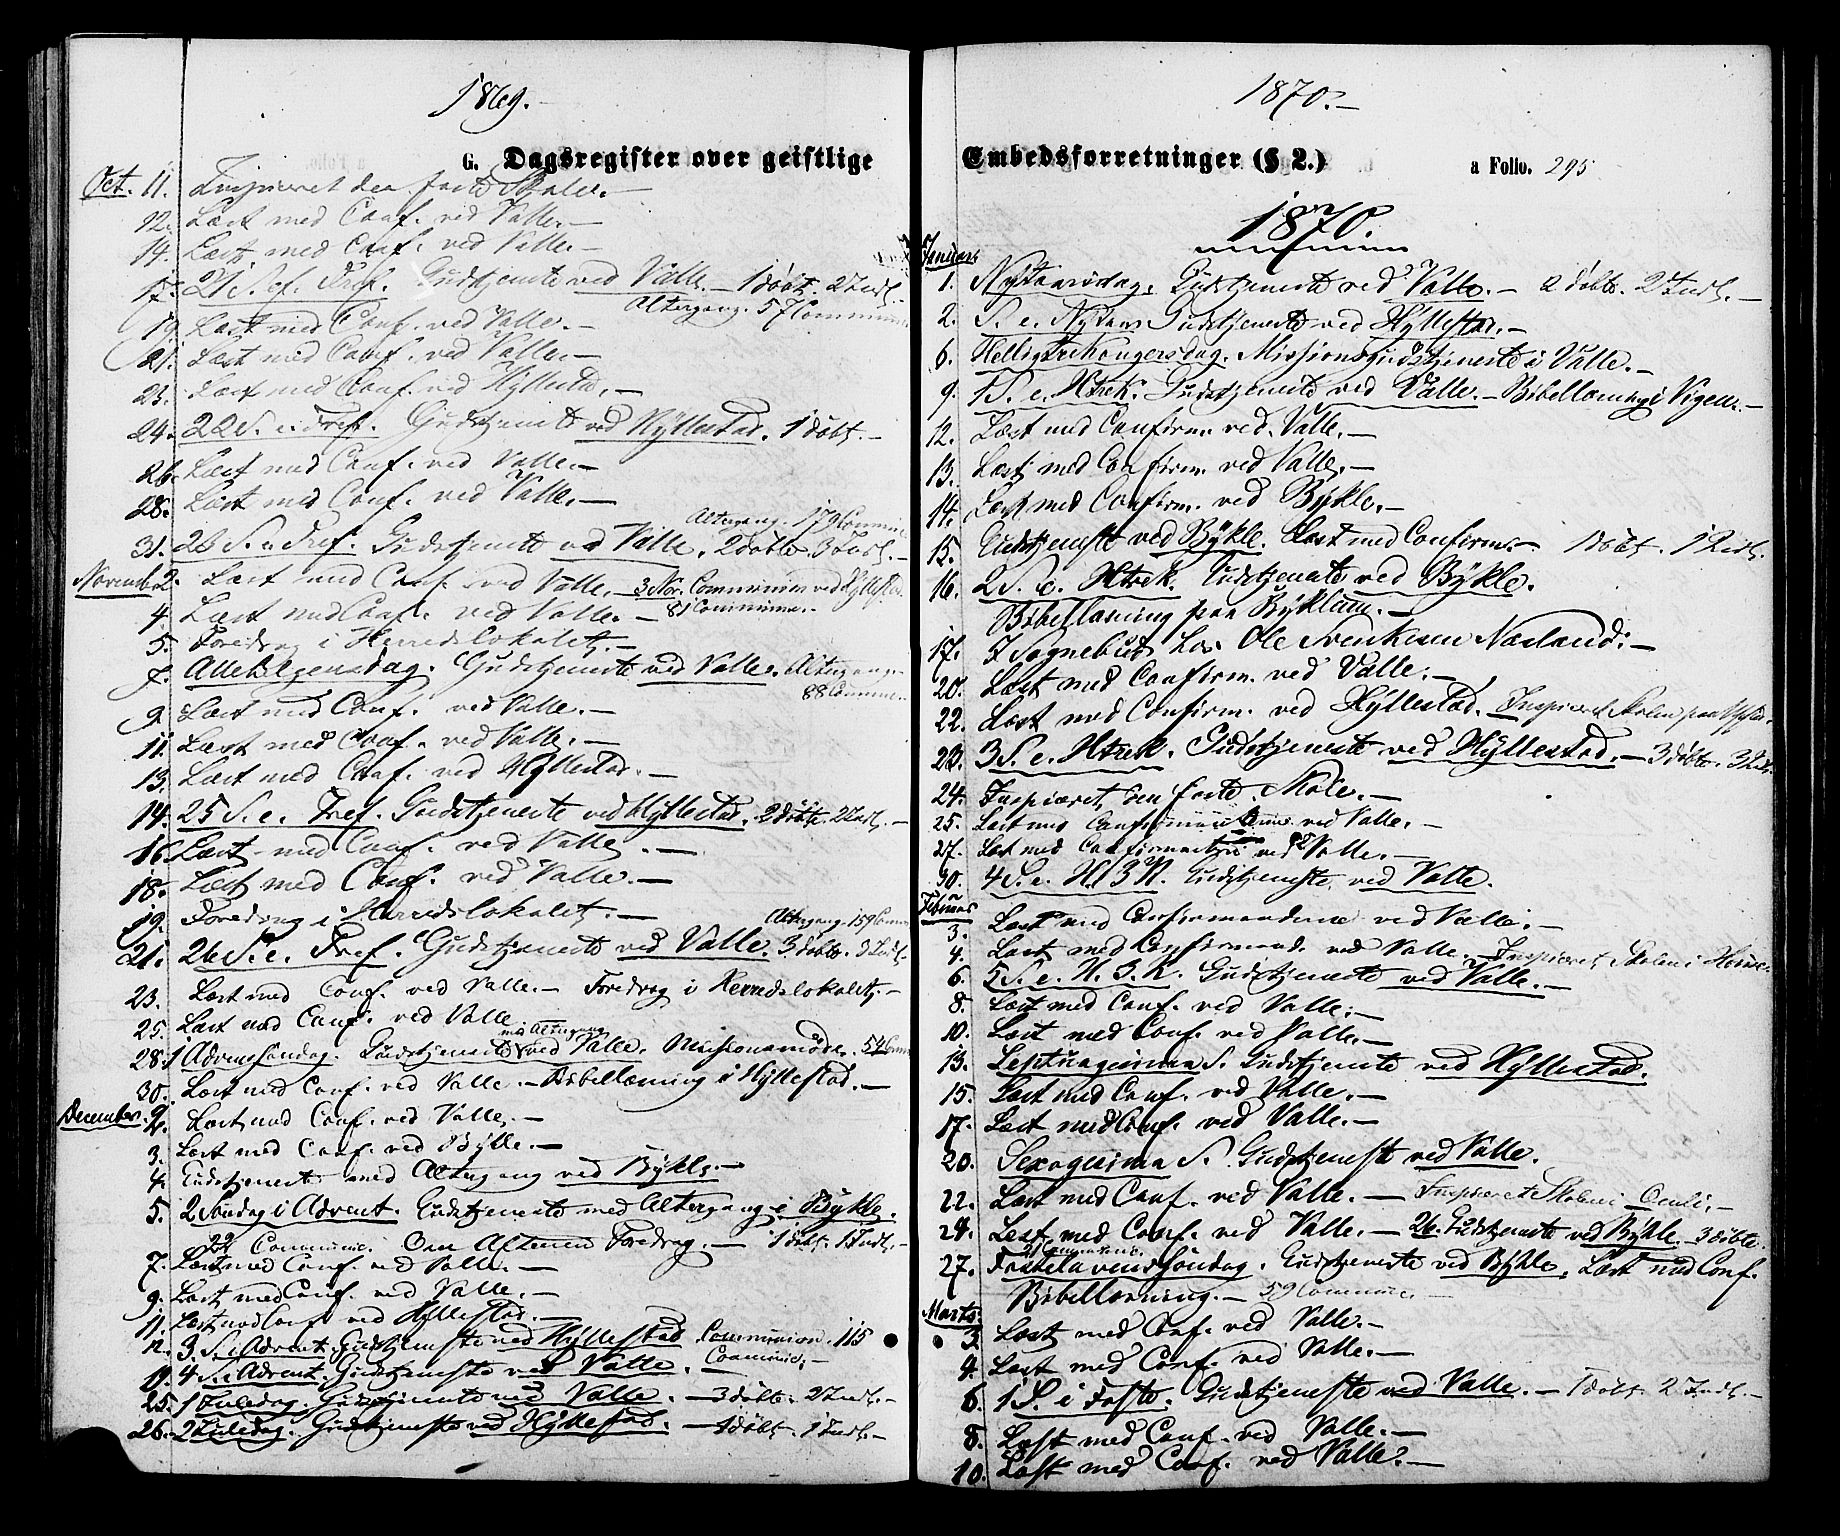 1869.-
G. Dagsregister over geistlige
Oct. 11. Inspiceret den faste Skole.-
12. Læst med Conf. ved Valle.-
14. Læst med Conf. ved Valle.-
17. 21 S. ef. Tref. Gudstjeneste ved Valle.- 1 döbt. 2 Indl.-
Altergang. 57 Commun
19. Læst med Conf. ved Valle.-
21. Læst med Conf. ved Valle.-
23. Læst med Conf. ved Hyllestad.-
24. 22 S. e. Tref. Gudstjeneste ved Hyllestad. 1 döbt.-
26. Læst med Conf. ved Valle.-
28. Læst med Conf. ved Valle.-
Altergang. 179 Commun
31. 23 S. e. Tref. Gudstjeneste ved Valle. 2 döbte 3 Indl.-
Novemb. 2. Læst med Conf. ved Valle.- 3 Nov. Communion ved Hyllestad.
4. Læst med Conf. ved Valle.- 81 Commun.-
5. Foredrag i Herredslokalet.-
7. Allehelgensdag. Gudstjeneste ved Valle. Altergang.
88 Commun.
9. Læst med Conf. ved Valle.-
11. Læst med Conf. ved Valle.-
13. Læst med Conf. ved Hyllestad.-
14. 25 S. e. Tref. Gudstjeneste ved Hyllestad. 2 döbte. 2 Indl.-
16. Læst med Conf. ved Valle.-
18. Læst med Conf. ved Valle.-
19. Foredrag i Herredslokalet.-
Altergang. 159 Comm
21. 26 S. e. Tref. Gudstjeneste ved Valle. 3 döbte. 3 Indl.
23. Læst med Conf. ved Valle.- Foredrag i Herredslokalet.-
25. Læst med Conf. ved Valle.
med Altergang
28. 1 Adventsöndag. Gudstjeneste ved Valle. Missionsmöde. 54 Comm
30. Læst med Conf. ved Valle.- Bibellæsning i Hyllestad.-
December. 2. Læst med Conf. ved Valle.-
3. Læst med Conf. ved Bykle.-
4. Gudstjeneste med Altergang ved Bykle.-
5. 2 Söndag i Advent. Gudstjeneste med Altergang i Bykle.
22 Commun. Om Aftenen Foredrag.- 1 döbt. 1 Indl.-
7. Læst med Conf. ved Valle.-
9. Læst med Conf. ved Valle.-
11. Læst med Conf. ved Hyllestad.-
12. 3 S. i Advent. Gudstjeneste ved Hyllestad Communion. 115
Commun.-
19. 4 S. i Advent. Gudstjeneste ved Valle.
25. 1 Juledag. Gudstjeneste ved Valle.- 3 döbte. 2 Indl.-
26. 2 Juledag. Gudstjeneste ved Hyllestad.- 1 döbt. 1 Indl.-
1870.-
Embedsforretninger (§ 2.)
a Folio. 295
1870.
Januar.
1. Nytaarsdag. Gudstjeneste ved Valle.- 2 döbte. 2 Indl.-
2. S. e. Nytaar. Gudstjeneste ved Hyllestad.-
6. Helligtrekongersdag. Missionsgudstjeneste i Valle.-
9. 1 S. e. Htrek. Gudstjeneste ved Valle.- Bibellæsning i Vigen.-
12. Læst med Confirm. ved Valle.-
13. Læst med Confirm. ved Valle.-
14. Læst med Confirm. ved Bykle.-
15. Gudstjeneste ved Bykle. Læst med Confirm.- 1 döbt. 1 Indl.
16. 2 S. e. Htrek. Gudstjeneste ved Bykle.
Bibellæsning paa Byklum.-
17. I Sognebud hos Ole Svenkesen Næsland.-
20. Læst med Confirm. ved Valle.-
22. Læst med Confirm. ved Hyllestad. Inspiceret Skolen paa
23. 3 S. e. Htrek. Gudstjeneste ved Hyllestad.- 3 döbte. 3 Indl.
24. Inspiceret den faste Skole.-
25. Læst med Confirmanderne ved Valle.-
27. Læst med Confirmanterne ved Valle.-
30. 4 S. e. H. 3 K. Gudstjeneste ved Valle.
Februar
3. Læst med Confirmanderne ved Valle.-
4. Læst med Confirmand. ved Valle. Inspiceret Skolen i
6. 5 S. e. H. 3. K. Gudstjeneste ved Valle.-
8. Læst med Conf. ved Valle.-
10. Læst med Conf. ved Valle.-
13. Septuagesima S. Gudstjeneste ved Hyllestad.
15. Læst med Conf. ved Valle.-
17. Læst med Conf. ved Valle.-
20. Sexagesima S. Gudstjeneste ved Valle.
22. Læst med Conf. ved Valle.- Inspiceret Skolen i Omli.-
24. Læst med Conf. ved Valle.- 26. Gudstjeneste ved Bykle.- 3 döbte.
27. Fastelavenssöndag. Gudstjeneste ved Bykle. Læst med Conf.
Bibellæsning.- 59 Commun.-
Marts. 3. Læst med Conf. ved Valle.-
4. Læst med Conf. ved Valle.-
6. 1 S. i Faste. Gudstjeneste ved Valle.- 1 döbt. 2 Indl.-
8. Læst med Conf. ved Valle.-
10. Læst med Conf. ved Valle.-